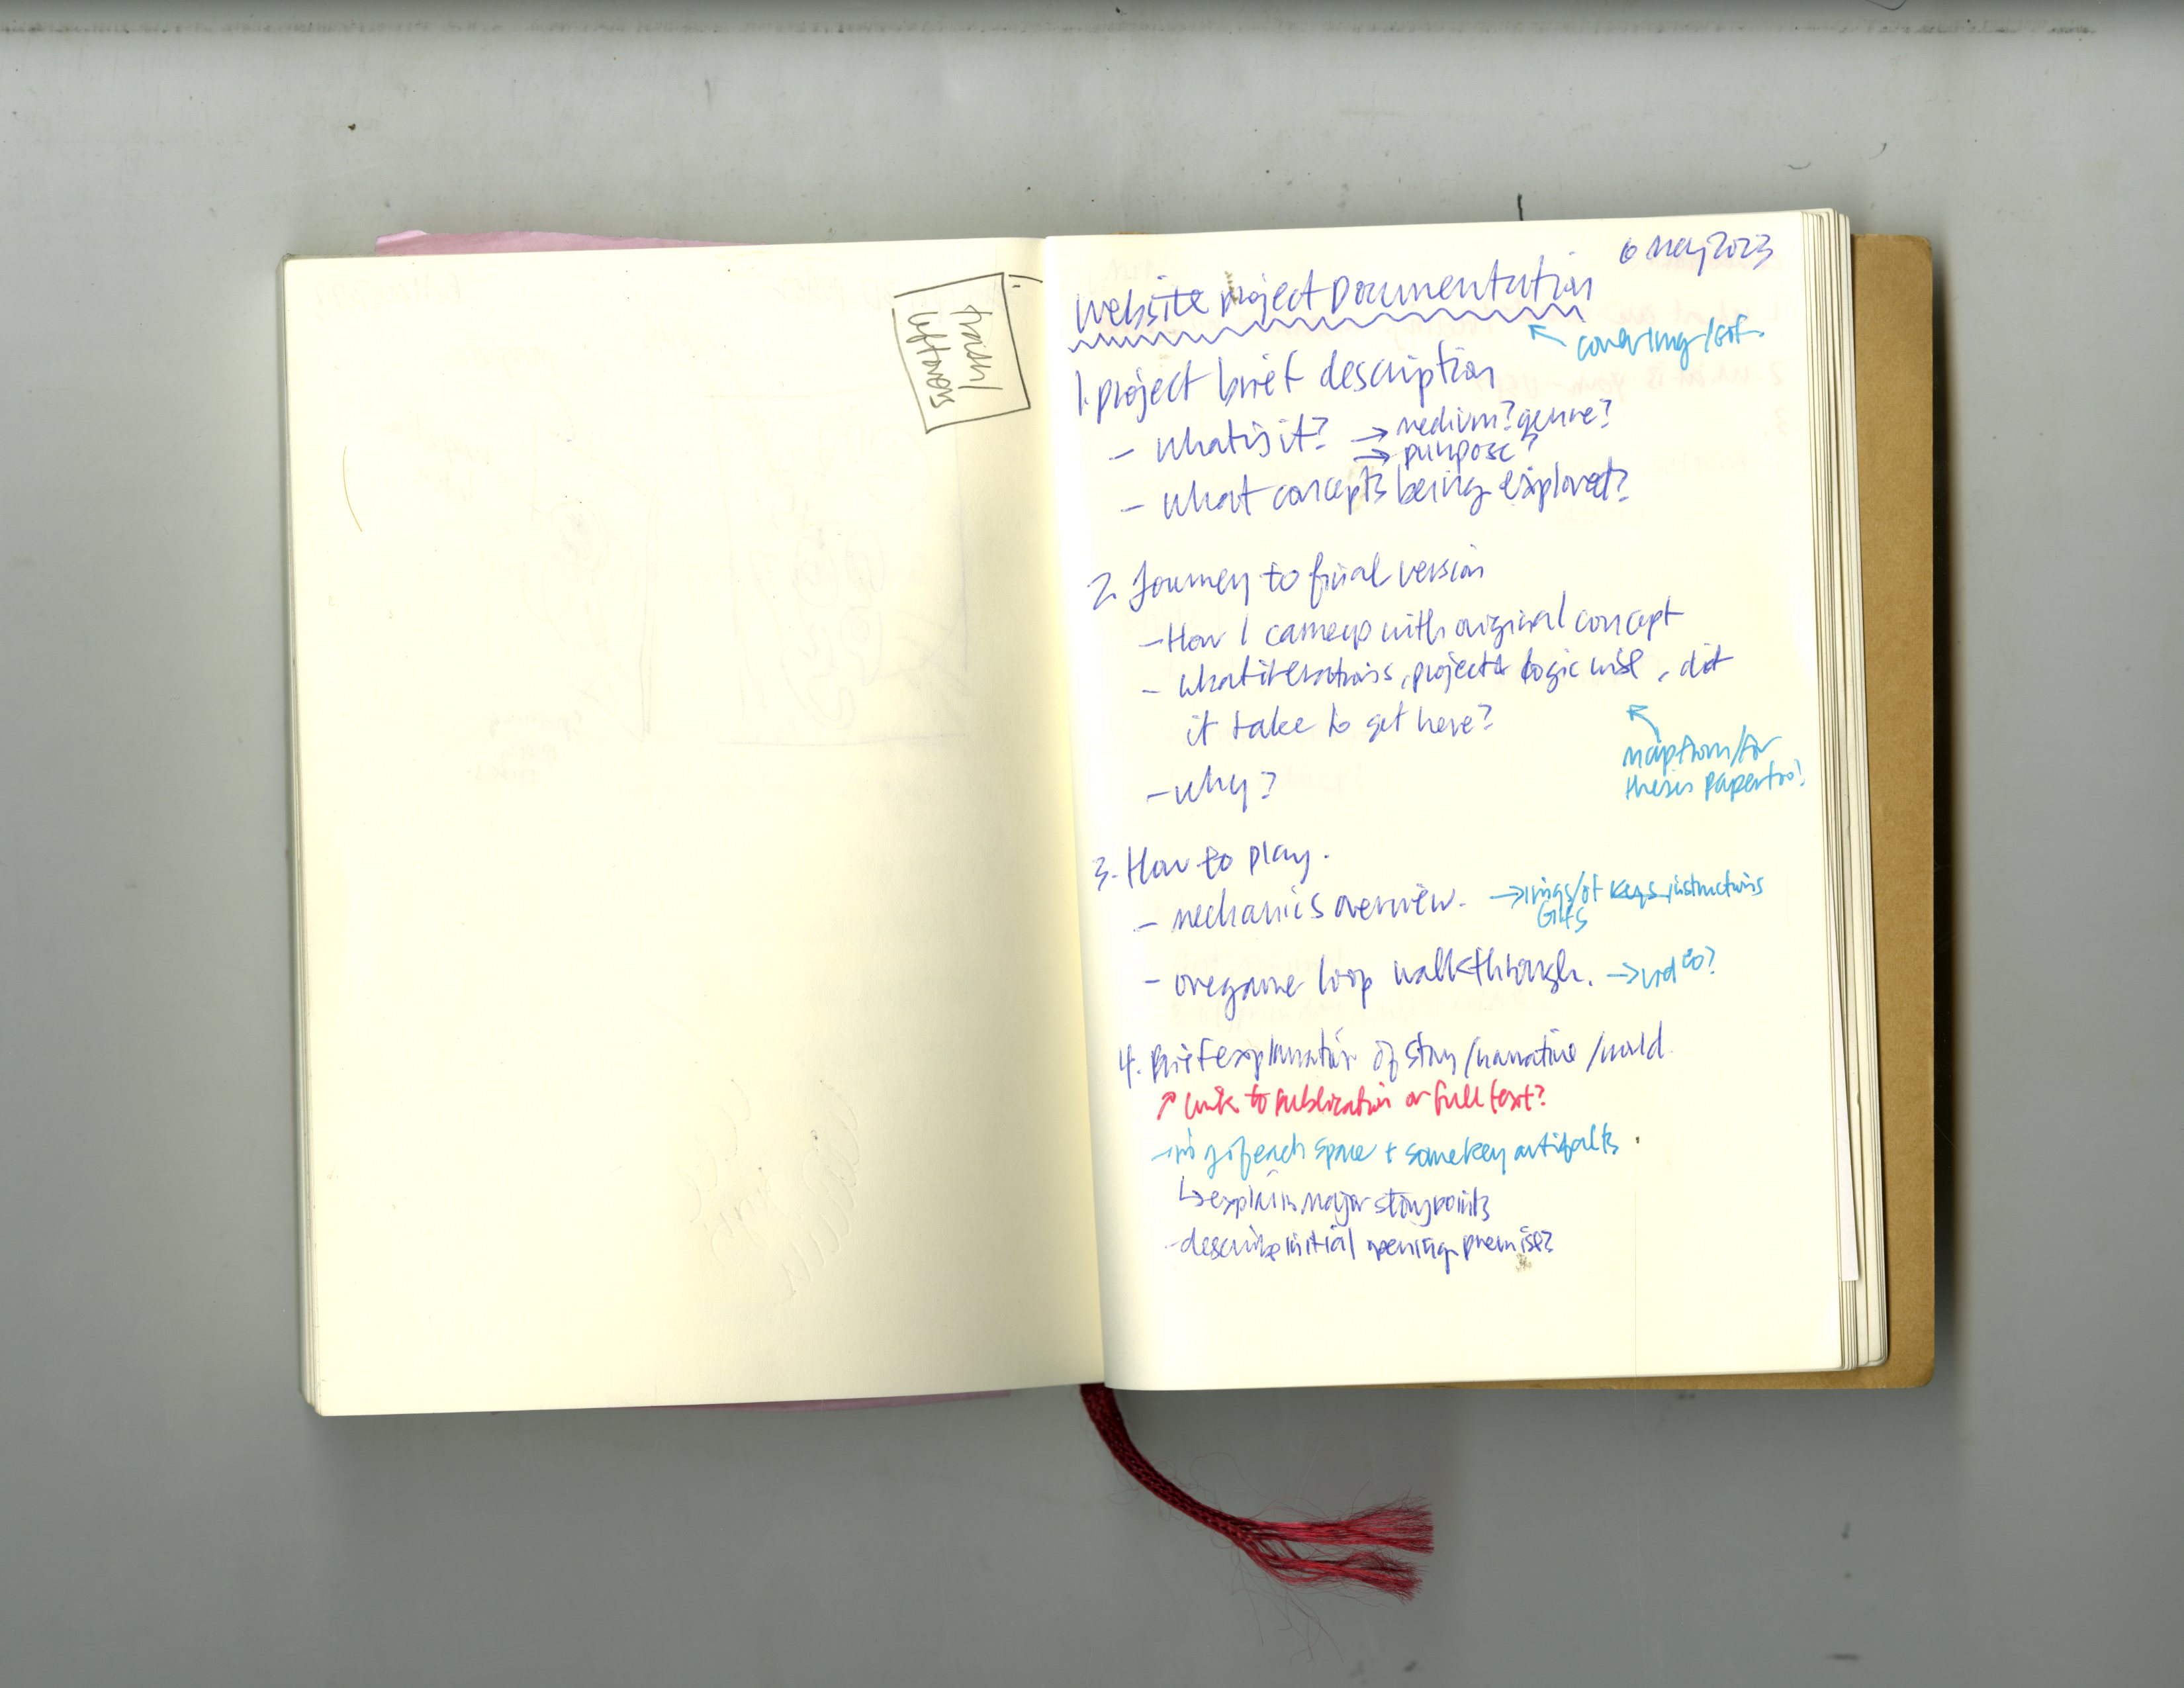 trash/
leftovers
6 May 2023
Website project Documentation
cover img/GIF.
1. project brief description
- what is it? → medium? genre?
→ purpose?
- what concepts being explored?
2. Journey to final version
- How I came up with original concept
- what iterations, project & logic wise, did
it take to get here?
map from/for
thesis paper too!
- why?
3. How to play.
- mechanics overview. → imgs/of keys instructions
GIFs
- one game loop walkthrough. → video?
4. Brief explanation of story/narrative/world
↗ link to publication or full text?
→ img of each space + some key artifacts
↳ explain major story points
- describe initial opening premise?